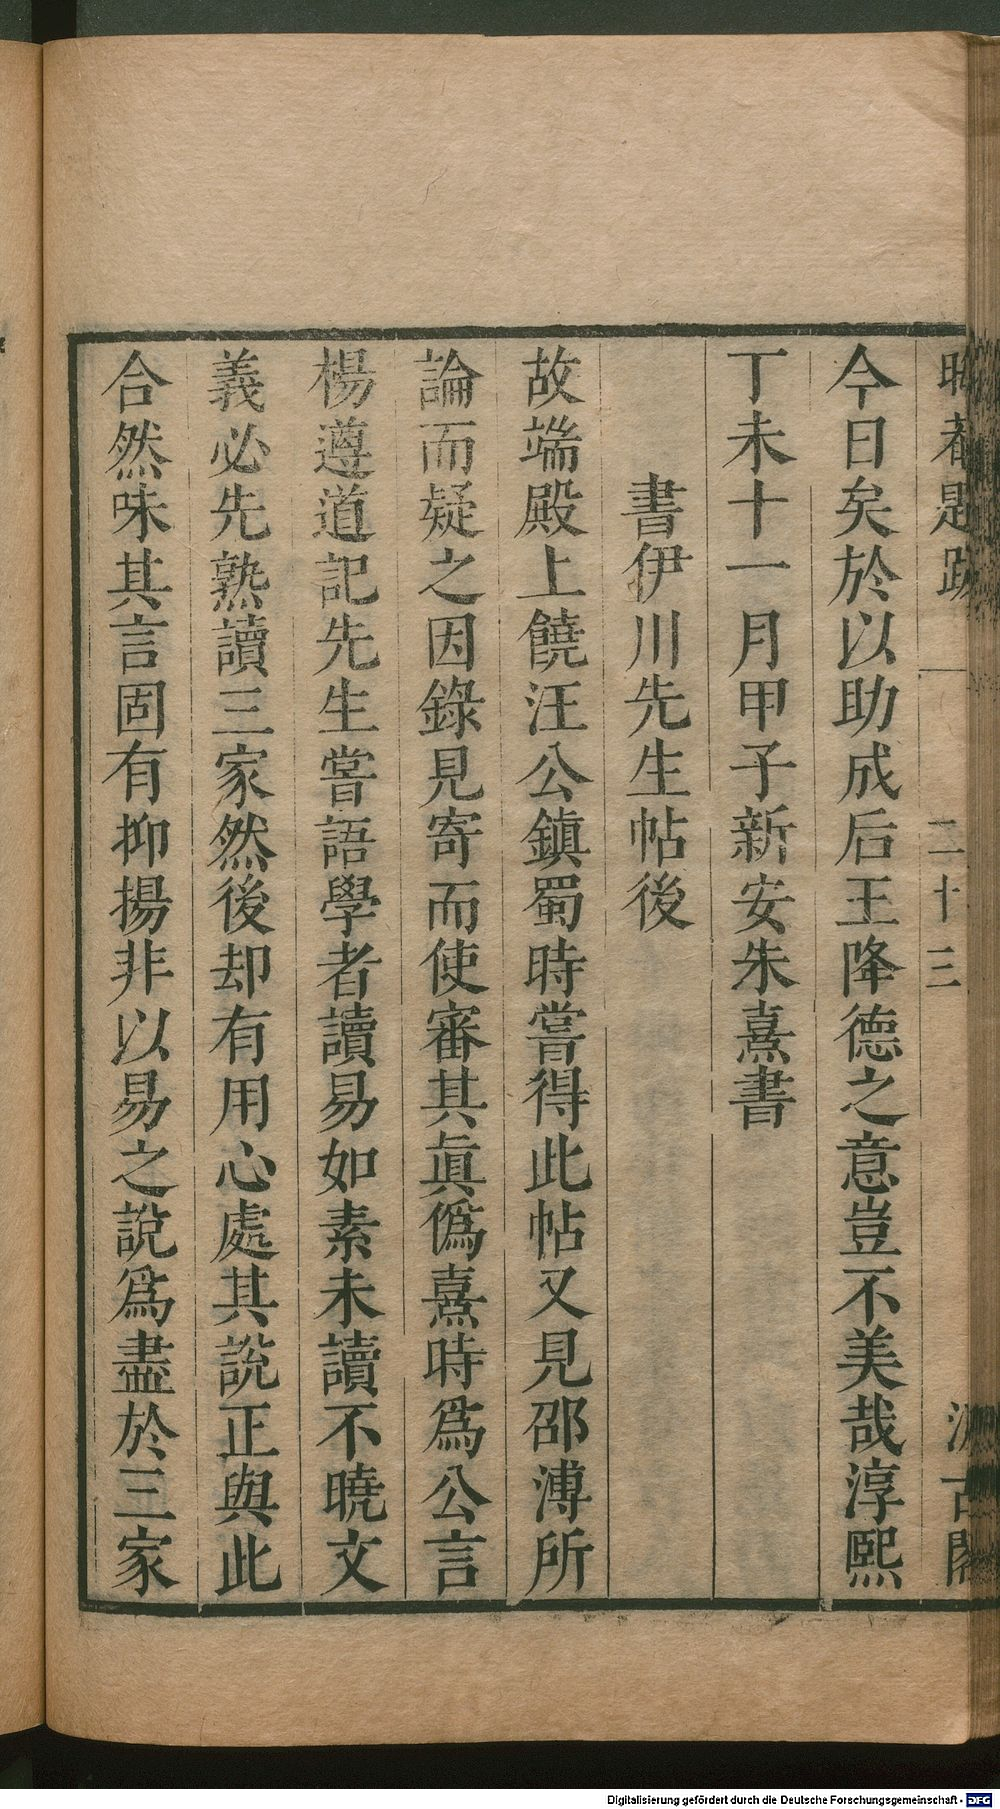 晦菴題跋 一 二十三 汲古閣
今日矣於以助成后王降德之意豈不美哉淳熙
丁未十一月甲子新安朱熹書
書伊川先生帖後
故端殿上饒汪公鎮蜀時嘗得此帖又見邵溥所
論而疑之因錄見寄而使審其眞僞熹時爲公言
楊遵道記先生嘗語學者讀易如素未讀不曉文
義必先熟讀三家然後却有用心處其說正與此
合然味其言固有抑揚非以易之說爲盡於三家
Digitalisierung gefördert durch die Deutsche Forschungsgemeinschaft - DFG